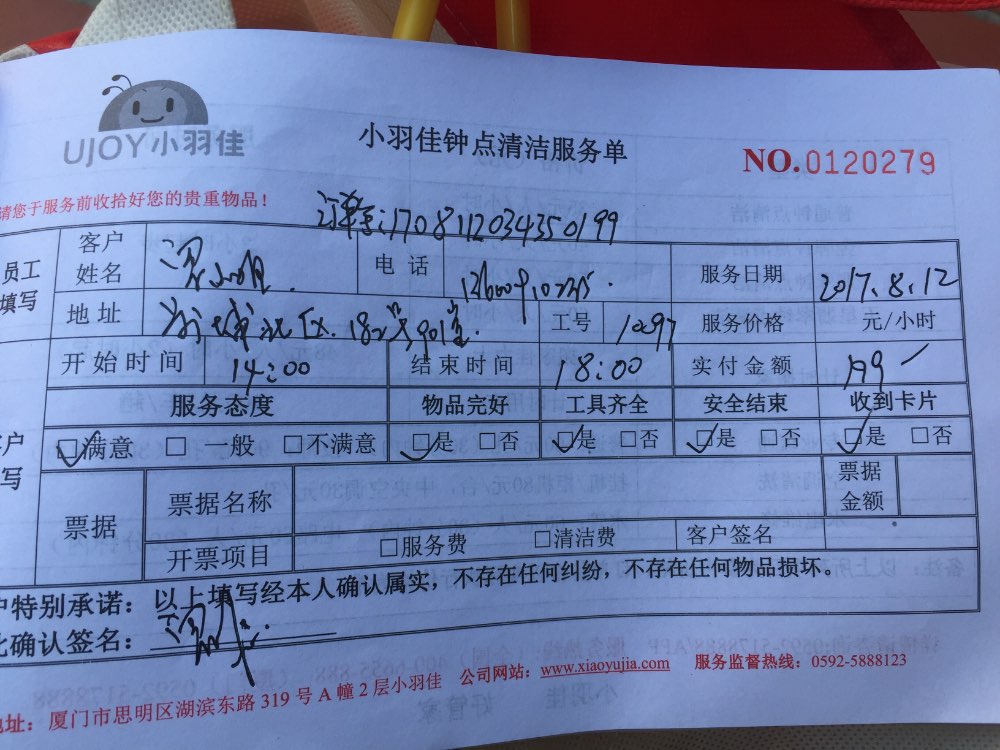 UJOY小羽佳
小羽佳钟点清洁服务单
NO.0120279
请您于服务前收拾好您的贵重物品！
订单号:1708112034350199
员工填写
客户姓名 电话 服务日期 2017.8.12
地址 工号 1297 服务价格 元/小时
开始时间 14:00 结束时间 18:00 实付金额 199
服务态度 物品完好 工具齐全 安全结束 收到卡片
☑满意 □一般 □不满意 ☑是 □否 ☑是 □否 ☑是 □否 ☑是 □否
票据 票据名称 票据金额
开票项目 □服务费 □清洁费 客户签名
户特别承诺：以上填写经本人确认属实，不存在任何纠纷，不存在任何物品损坏。
此确认签名：
地址：厦门市思明区湖滨东路319号A幢2层小羽佳 公司网站：www.xiaoyujia.com 服务监督热线：0592-5888123